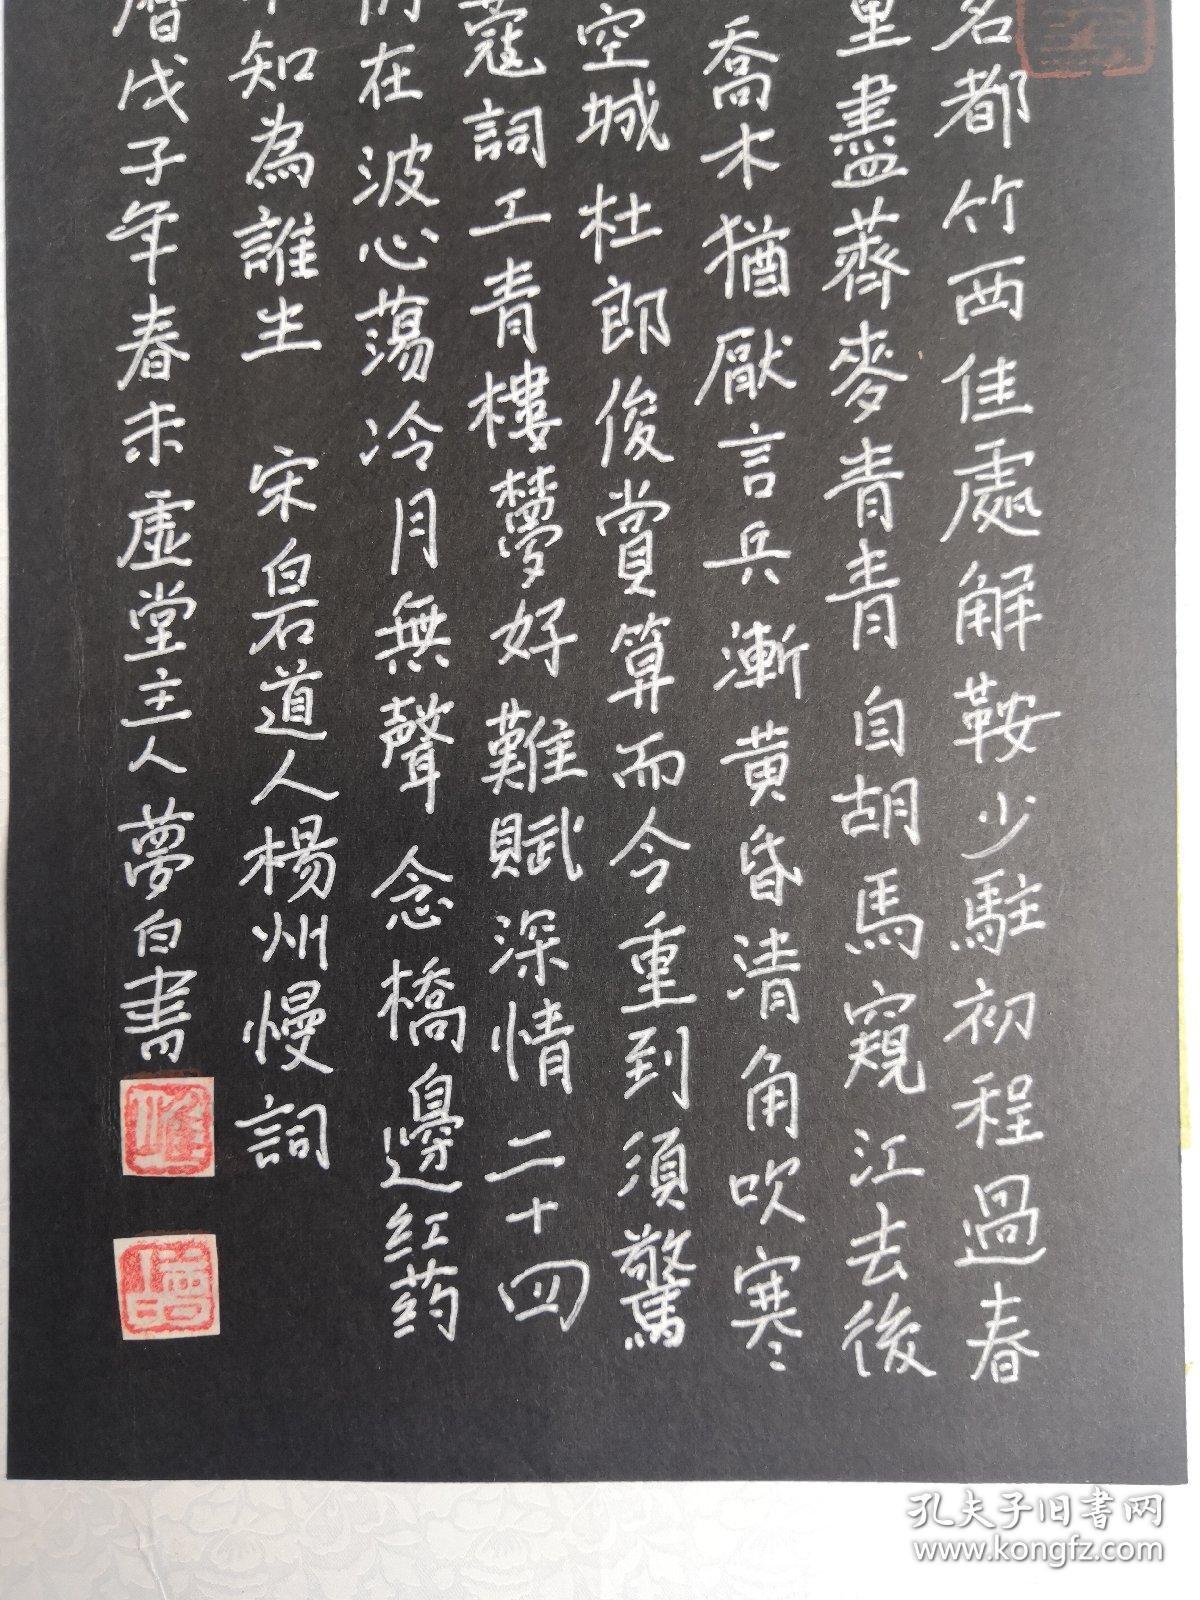 名都竹西佳處解鞍少駐初程過春
里盡薺麥青青自胡馬窺江去後
喬木猶厭言兵漸黄昏清角吹寒
空城杜郎俊賞算而今重到須驚
蔻詞工青樓夢好難賦深情二十四
仍在波心蕩冷月無聲念橋邊红药
年知為誰生 宋皛道人楊州慢詞
曆戊子年春未虛堂主人夢白書
孔夫子旧书网
www.kongfz.com